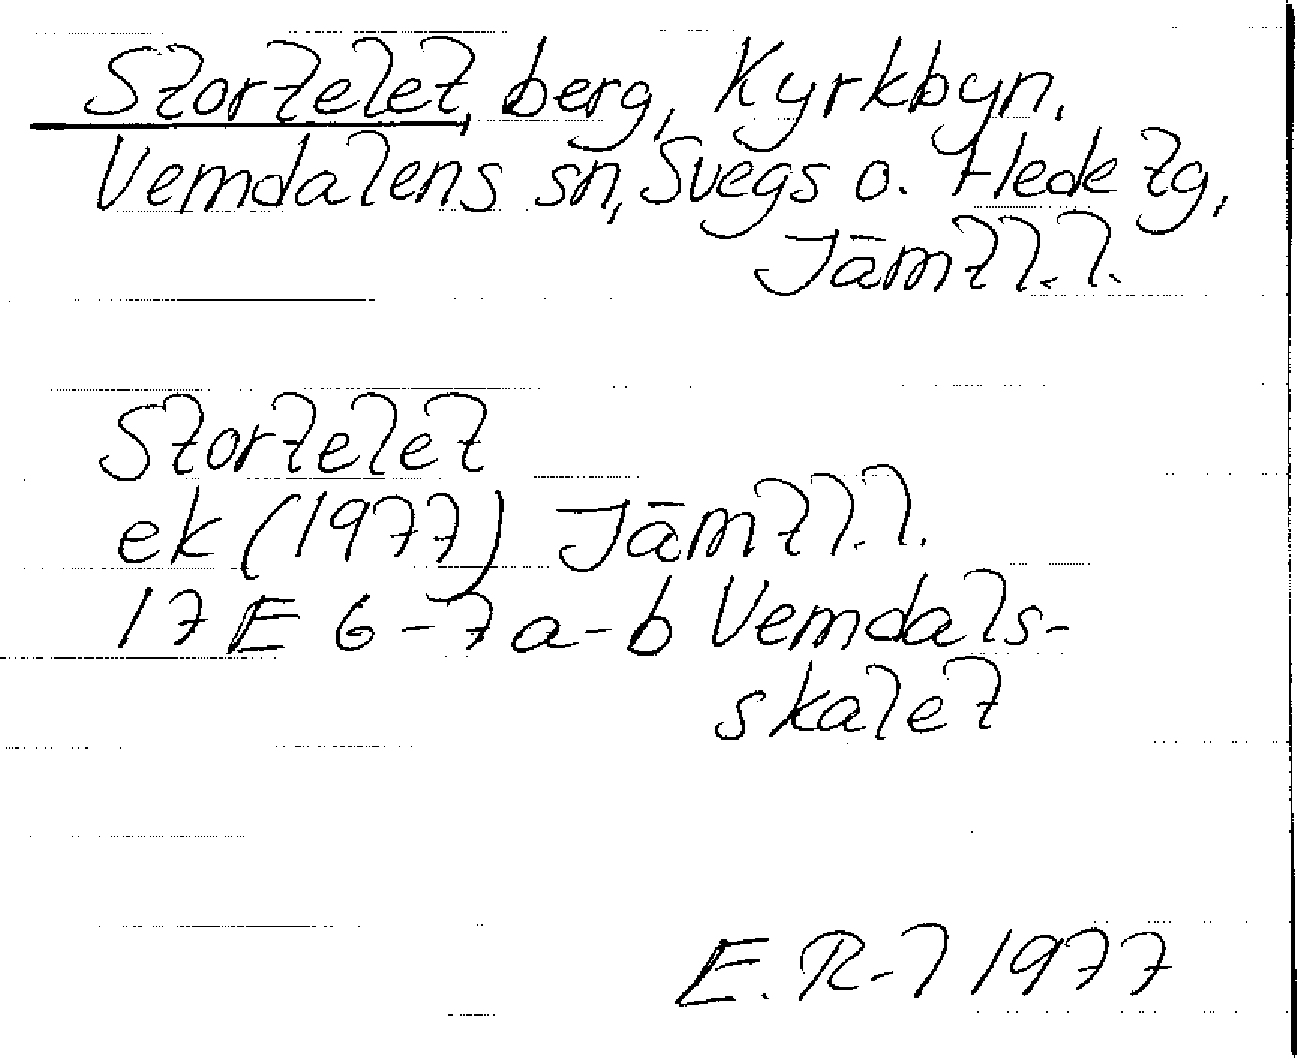 Stortelet, berg, Kyrkbyn.
Vemdalens sn, Svegs o. Hede tg,
Jämtl.l.
Stortelet
ek (1977) Jämtl.l.
17E 6-7a-b Vemdals-
skalet
E. R-l 1977